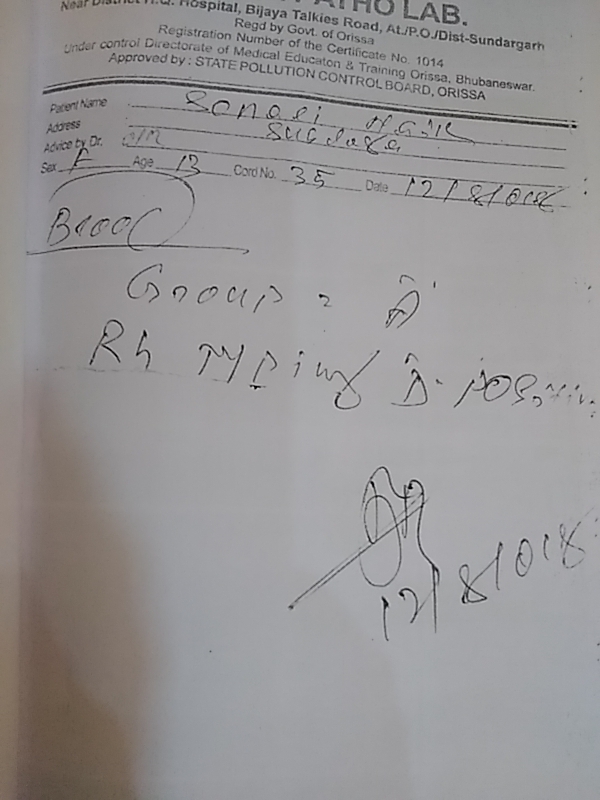 PATHO LAB.
Near District H.Q. Hospital, Bijaya Talkies Road, At./P.O./Dist-Sundargarh
Regd by Govt. of Orissa
Registration Number of the Certificate No. 1014
Under control Directorate of Medical Educaton & Training Orissa, Bhubaneswar.
Approved by : STATE POLLUTION CONTROL BOARD, ORISSA
Patient Name Sonali Naik
Address
Advice by Dr.
Sex F Age 13 Cord No. 35 Date 12/8/018
Blood
Group = 'A'
Rh Typing D - Positive
12/8/018